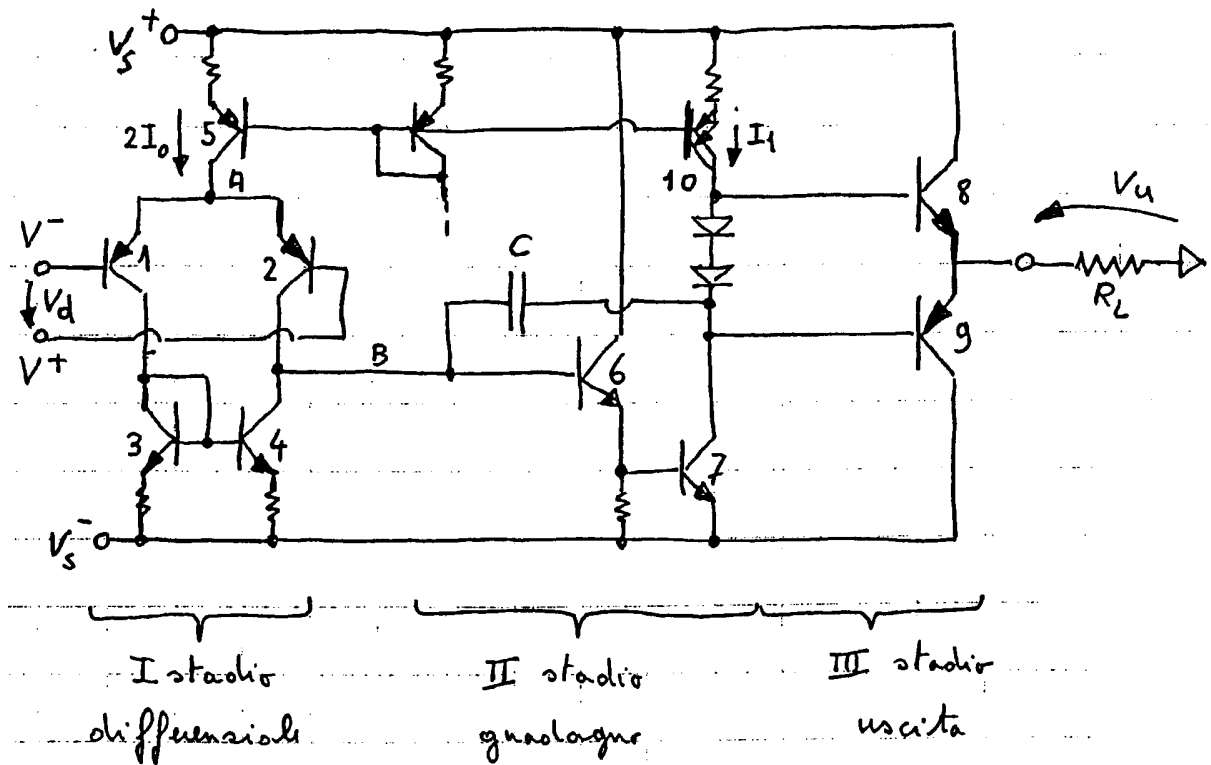 Vs+
2I₀
5
A
I₁
10
8
Vu
V⁻
1
2
C
Vd
V⁺
B
6
RL
9
3
4
7
Vs⁻
I stadio
differenziale
II stadio
guadagno
III stadio
uscita